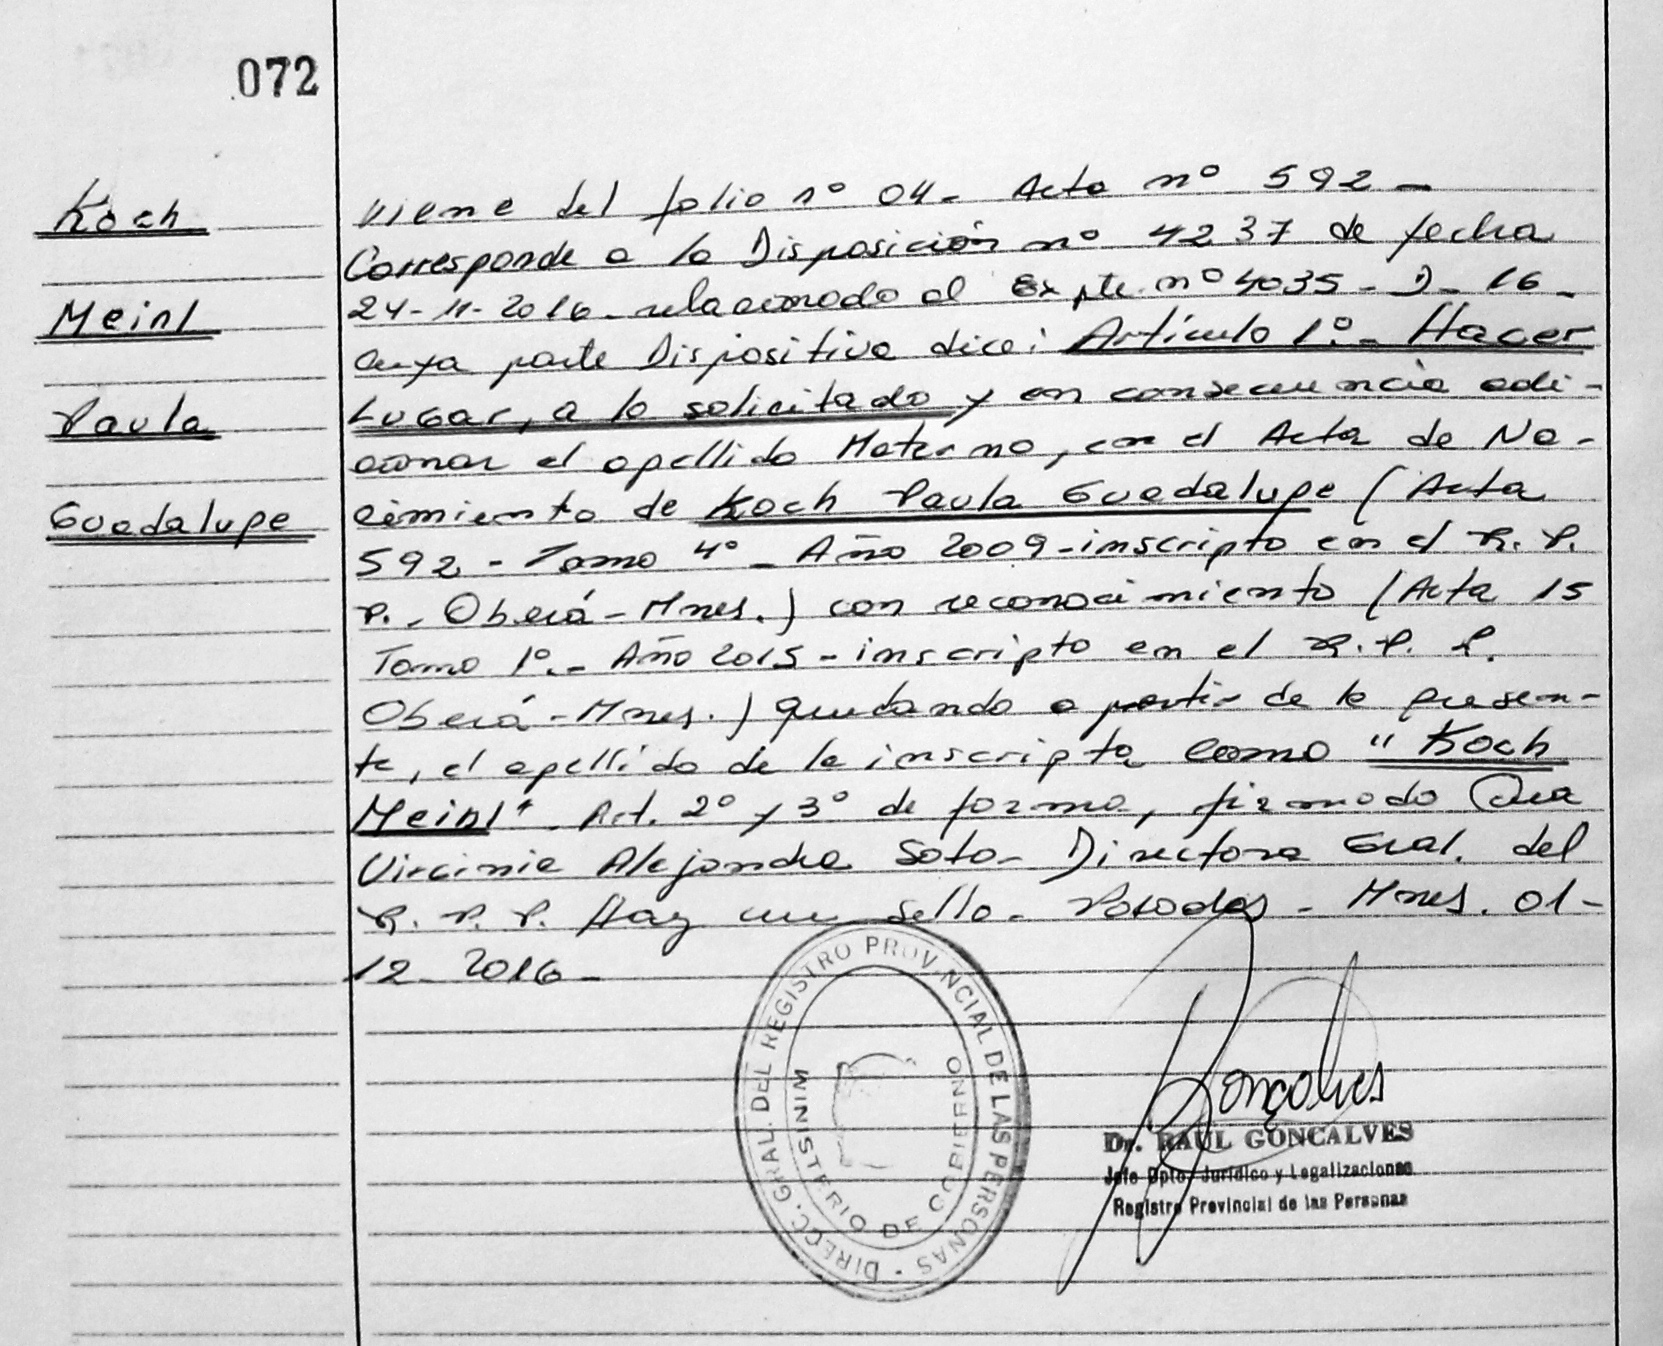 072
Koch
Meinl
Paula
Guadalupe
Viene del folio nº 04- Acta nº 592-
Corresponde a la Disposición nº 4237 de fecha
24-11-2016- relacionado al Expte. nº 4035-D-16-
cuya parte Dispositiva dice: Artículo 1º.- Hacer
Lugar, a lo solicitado y en consecuencia adi-
cionar el apellido Materno, en el Acta de Na-
cimiento de Koch Paula Guadalupe (Acta
592 - Tomo 4º - Año 2009-inscripto en el R. P.
P. - Oberá-Mnes.) con reconocimiento (Acta 15
Tomo 1º.- Año 2015-inscripto en el R. P. P.
Oberá-Mnes.) quedando a partir de la presen-
te, el apellido de la inscripta como "Koch
Meinl". Art. 2º y 3º de forma, firmado Dra
Virginia Alejandra Soto- Directora Gral. del
R. P. P. Hay un sello- Posadas - Mnes. 01-
12-2016-
DIRECC. GRAL. DEL REGISTRO PROVINCIAL DE LAS PERSONAS -
MINISTERIO DE GOBIERNO
Gonçalves
Dr. RAUL GONCALVES
Jefe Dpto. Jurídico y Legalizaciones
Registro Provincial de las Personas